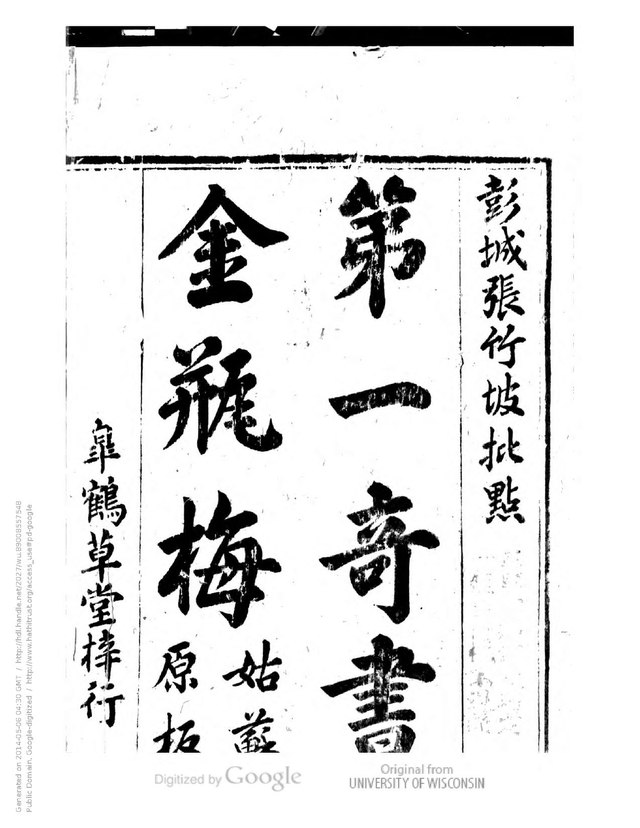 彭城張竹坡批點
第一奇書
金瓶梅
姑蘇
原板
臯鶴草堂梓行
Generated on 2014-05-06 04:30 GMT / http://hdl.handle.net/2027/wu.89008557548
Public Domain, Google-digitized / http://www.hathitrust.org/access_use#pd-google
Digitized by Google
Original from
UNIVERSITY OF WISCONSIN